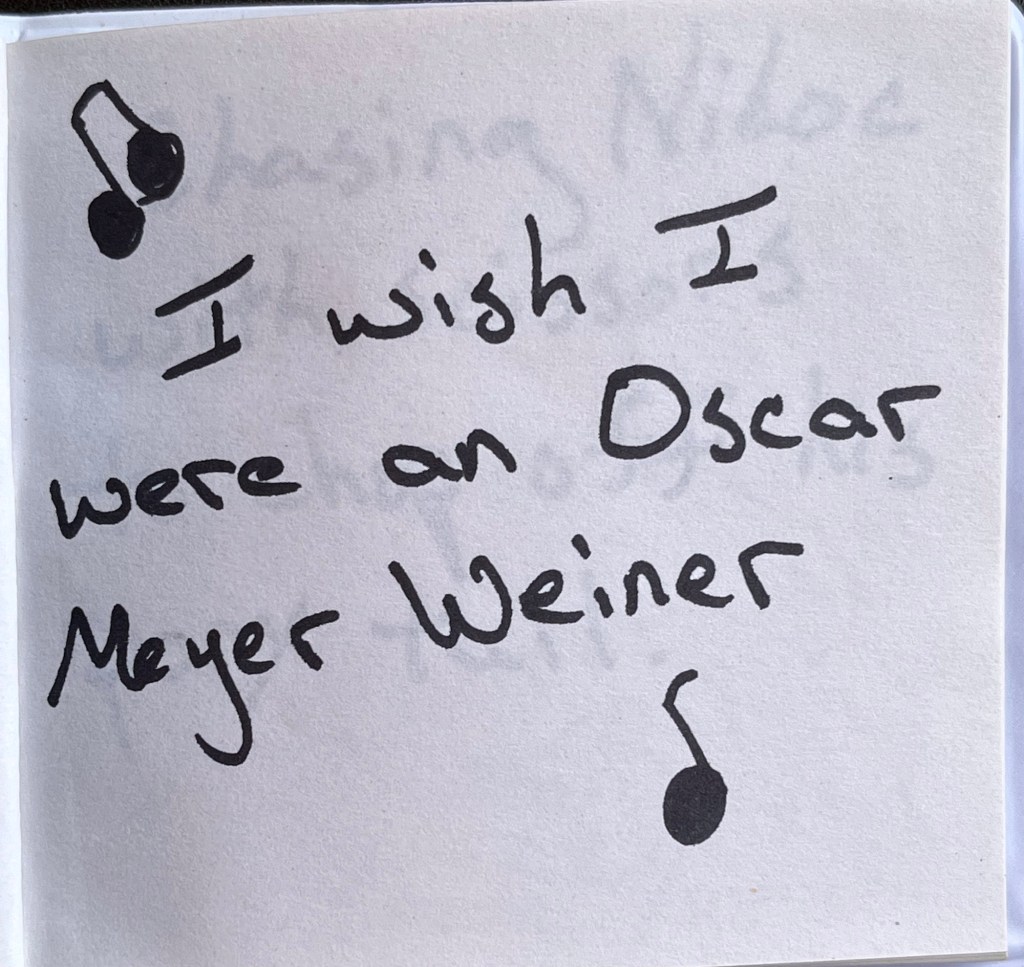 I wish I
were an Oscar
Meyer Weiner